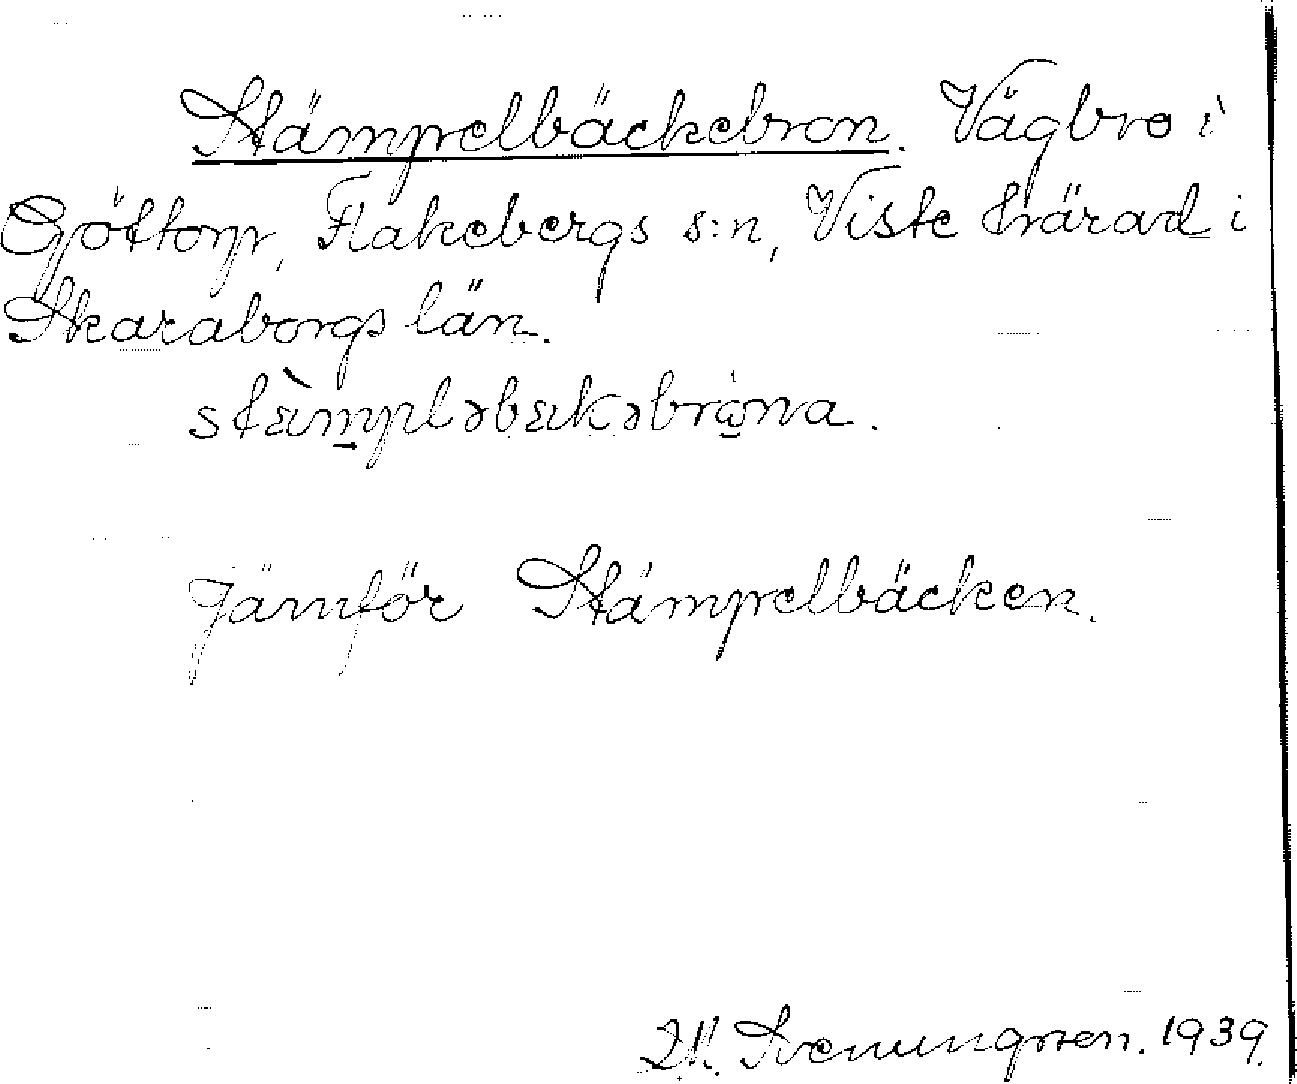 Stämpelbäckebron. Vägbro i
Göttorp, Flakebergs s:n, Viste härad i
Skaraborgs län.
stæ̀mpləbækəbrǫna.
Jämför Stämpelbäcken.
Svenungsson. 1939.